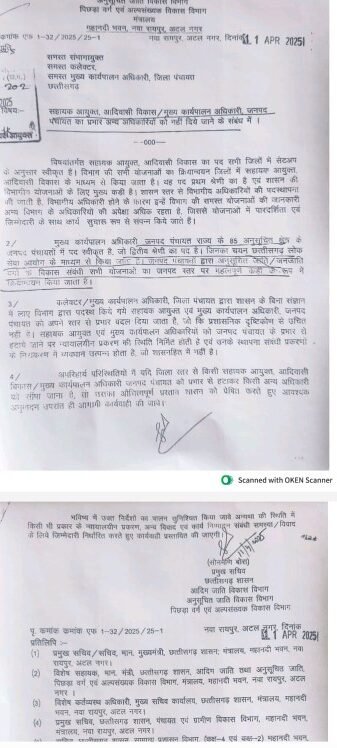 अनुसूचित जाति विकास विभाग
पिछड़ा वर्ग एवं अल्पसंख्यक विकास विभाग
मंत्रालय
महानदी भवन, नवा रायपुर, अटल नगर
क्रमांक एफ 1-32/2025/25-1 नवा रायपुर, अटल नगर, दिनांक 11 APR 2025
प्रति,
समस्त संभागायुक्त
समस्त कलेक्टर,
समस्त मुख्य कार्यपालन अधिकारी, जिला पंचायत
छत्तीसगढ़
विषय:- सहायक आयुक्त, आदिवासी विकास/मुख्य कार्यपालन अधिकारी, जनपद
पंचायत का प्रभार अन्य अधिकारियों को नहीं दिये जाने के संबंध में ।
--000--
विषयांतर्गत सहायक आयुक्त, आदिवासी विकास का पद सभी जिलों में सेटअप
के अनुसार स्वीकृत है। विभाग की सभी योजनाओं का क्रियान्वयन जिलों में सहायक आयुक्त,
आदिवासी विकास के माध्यम से किया जाता है। यह पद प्रथम श्रेणी का है एवं शासन की
विभागीय योजनाओं के लिए मुख्य कड़ी है। शासन स्तर से विभागीय अधिकारियों की पदस्थापना
की जाती है, विभागीय अधिकारी होने के कारण इन्हें विभाग की समस्त योजनाओं की जानकारी
अन्य विभाग के अधिकारियों की अपेक्षा अधिक रहता है, जिससे योजनाओं में पारदर्शिता एवं
जिम्मेदारी के साथ कार्य सुचारू रूप से संपन्न किये जाते हैं।
2/ मुख्य कार्यपालन अधिकारी, जनपद पंचायत राज्य के 85 अनुसूचित क्षेत्र के
जनपद पंचायतों में पद स्वीकृत है, जो द्वितीय श्रेणी का पद है। जिनका चयन छत्तीसगढ़ लोक
सेवा आयोग के माध्यम से किया जाता है। जनपद पंचायतों द्वारा अनुसूचित जाति/जनजाति
वर्गों के विकास संबंधी सभी योजनाओं का जनपद स्तर पर महत्वपूर्ण कड़ी के रूप में
क्रियान्वयन किया जाता है।
3/ कलेक्टर/मुख्य कार्यपालन अधिकारी, जिला पंचायत द्वारा शासन के बिना संज्ञान
में लाए विभाग द्वारा पदस्थ किये गये सहायक आयुक्त एवं मुख्य कार्यपालन अधिकारी, जनपद
पंचायत को अपने स्तर से प्रभार बदल दिया जाता है, जो कि प्रशासनिक दृष्टिकोण से उचित
नहीं है। सहायक आयुक्त एवं मुख्य कार्यपालन अधिकारियों को जनपद पंचायत के प्रभार से
हटाये जाने पर न्यायालयीन प्रकरण की स्थिति निर्मित होती है एवं उनके स्थापना संबंधी प्रकरणों
के निराकरण में व्यवधान उत्पन्न होता है, जो शासनहित में नहीं है।
4/ अपरिहार्य परिस्थितियों में यदि जिला स्तर से किसी सहायक आयुक्त, आदिवासी
विकास/मुख्य कार्यपालन अधिकारी जनपद पंचायत को प्रभार से हटाकर किसी अन्य अधिकारी
को सौंपा जाना है, तो उसका औचित्यपूर्ण प्रस्ताव शासन को प्रेषित करते हुए आवश्यक
अनुमोदन उपरांत ही आगामी कार्यवाही की जावे।
Scanned with OKEN Scanner
भविष्य में उक्त निर्देशों का पालन सुनिश्चित किया जावे अन्यथा की स्थिति में
किसी भी प्रकार के न्यायालयीन प्रकरण, अन्य विवाद एवं कार्य निष्पादन संबंधी समस्या/विवाद
के लिये जिम्मेदारी निर्धारित करते हुए कार्यवाही प्रस्तावित की जाएगी।
(सोनमणि बोरा)
प्रमुख सचिव
छत्तीसगढ़ शासन
आदिम जाति विकास विभाग
अनुसूचित जाति विकास विभाग
पिछड़ा वर्ग एवं अल्पसंख्यक विकास विभाग
पृ. क्रमांक क्रमांक एफ 1-32/2025/25-1 नवा रायपुर, अटल नगर, दिनांक 11 APR 2025
प्रतिलिपि :-
(1) प्रमुख सचिव/सचिव, मान. मुख्यमंत्री, छत्तीसगढ़ शासन, मंत्रालय, महानदी भवन, नवा
रायपुर, अटल नगर।
(2) विशेष सहायक, मान. मंत्री, छत्तीसगढ़ शासन, आदिम जाति तथा अनुसूचित जाति,
पिछड़ा वर्ग एवं अल्पसंख्यक विकास विभाग, मंत्रालय, महानदी भवन, नवा रायपुर, अटल
नगर ।
(3) विशेष कर्तव्यस्थ अधिकारी, मुख्य सचिव कार्यालय, छत्तीसगढ़ शासन, मंत्रालय, महानदी
भवन, नवा रायपुर, अटल नगर ।
(4) प्रमुख सचिव, छत्तीसगढ़ शासन, पंचायत एवं ग्रामीण विकास विभाग, महानदी भवन,
मंत्रालय, नवा रायपुर, अटल नगर ।
छत्तीसगढ़ शासन सामान्य प्रशासन विभाग (कक्ष-4 एवं कक्ष-2) महानदी भवन,